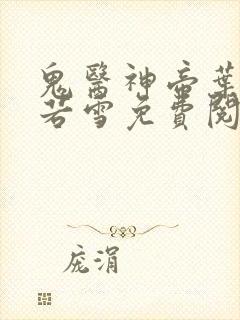 鬼醫神帝葉
若雪免費閱
庞涓